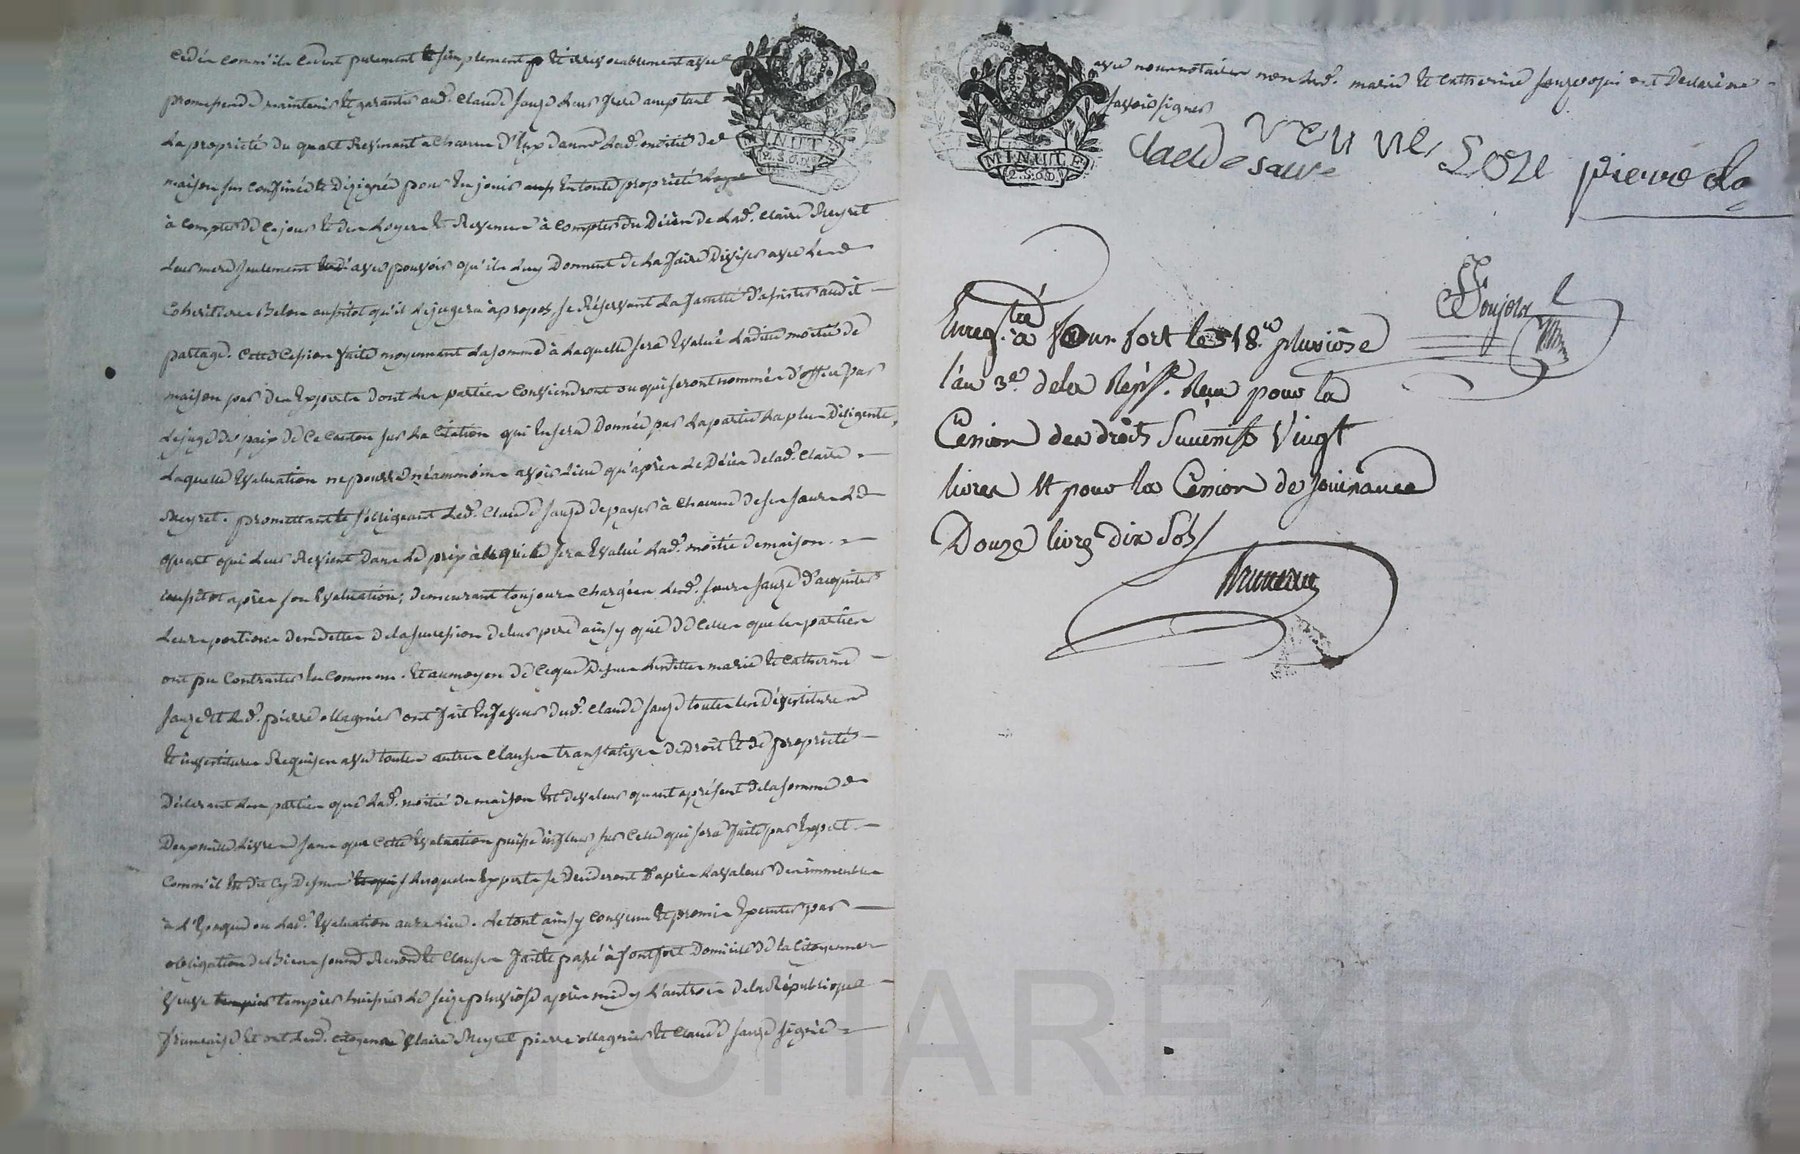 cedér comm'ils cedent purement et simplement et irrevocablement avec
promesse de maintenir et garantir aud. Claude Sauze leur frere acceptant
La propriété du quart Revenant a chacun d'Eux dans Lad. moitié de
maison sus confinée et désignée pour En jouir En toute propriété
à compter de ce jour et des Loyers et Revenus à compter du Décès de Lad. Claire Reyret
Leur mere seulement avec pouvoir qu'ils Luy Donnent de La faire Diviser avec Les
Coheritiers Belon aussitot qu'il Le jugera à propos, se Réservant La faculté d'assister audit
partage. Cette Cession faite moyennant La somme à Laquelle sera Evalué Ladite moitié de
maison par des Experts dont Les parties Conviendront ou qui seront nommés d'office par
Le juge de paix de Ce Canton sur La Citation qui En sera Donnée par La partie La plus Diligente,
Laquelle Evaluation ne pourra néammoins avoir Lieu qu'après Le Décès de Lad. Claire
Reyret. promettant et s'obligeant Led. Claude Sauze de payer à Chacune de ses sœurs Le
quart qui Leur Revient Dans Le prix à Laquelle sera Evalué Lad. moitié de maison
aussitot après son Evaluation; demeurant toujours chargées Lesd. sœurs Sauze d'acquiter
Leurs portions des dettes de La succession de leur pere ainsy que de Celles que Les parties
ont pu Contracter En Commun. Et au moyen de Ce que Dessus Lesdittes marie et Catherine
Sauze et Led. pierre ollagnier ont fait En faveur dud. Claude Sauze toutes Les Dévestitures
et investitures Requises avec toutes autres Clauses translatives de Droit et de propriété
Déclarant Les parties que Lad. moitié de maison Est de valeur quant à présent de La somme de
Deux mille Livres sans que Cette Evaluation puisse influer sur Celle qui sera faite par Expert
Comm'il Est dit Cy Dessus Lesquels Experts se Decideront d'après La valeur Des immeubles
à L'Epoque ou Lad. Evaluation aura Lieu. Le tout ainsy Convenu Et promis Executer par
obligation de Biens soumis Renoncé et Clauses fait et passé à fontfort Domicile de La Citoyenne
veuve tempier huissier Le seize pluviose après midy L'an trois de La République
francaise Et ont Lesd. citoyens Claire Reyret pierre ollagnier et Claude Sauze signé
avec nous notaire non Lesd. marie et Catherine Sauze qui ont Declaré ne
savoir signer
MINUTE
2. S. 6. D.
MINUTE
2. S. 6. D.
claude sauze veuve
pierre ola
Enreg.tré à fonfort le 18.e pluviôse
l'an 3.e de la Rép. Reçu pour la
Cession des droits Successifs Vingt
livres et pour la Cession de jouissance
Douze livres dix Sols
Bruneau